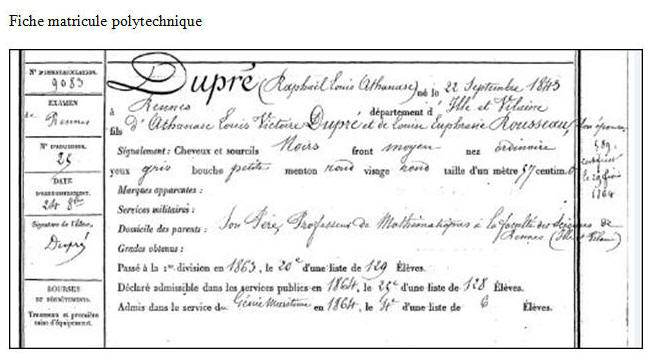 Fiche matricule polytechnique
N° D'IMMATRICULATION.
9083
EXAMEN
de Rennes
N° D'ADMISSION.
25
DATE
24 8bre
Signature de l'Élève.
Dupré
BOURSES
Trousseau et première
mise d'équipement.
Dupré (Raphaël Louis Athanase) né le 22 Septembre 1843
à Rennes département d'Ille et Vilaine
fils d'Athanase Louis Victoire Dupré et de Louise Euphrasie Rousseau,
Signalement: Cheveux et sourcils Noirs front moyen nez ordinaire
yeux gris bouche petite menton rond visage rond taille d'un mètre 57 centim.
Marques apparentes:
Services militaires:
Domicile des parents: Son Père, Professeur de Mathématiques à la faculté des Sciences de
Rennes (Ille et Vilaine)
Grades obtenus:
Passé à la 1re division en 1863, le 20e d'une liste de 129 Élèves.
Déclaré admissible dans les services publics en 1864, le 25e d'une liste de 128 Élèves.
Admis dans le service du Génie Maritime en 1864, le 4e d'une liste de 6 Élèves.
1864